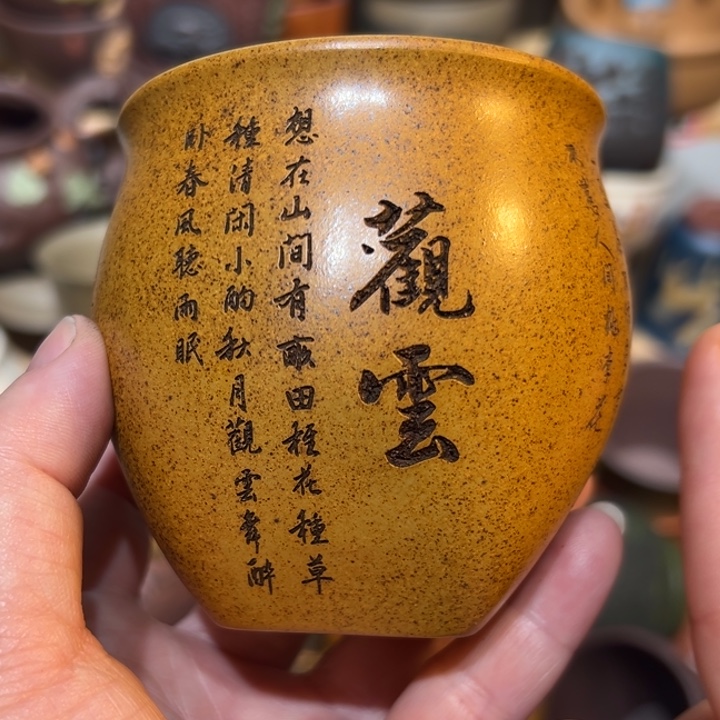 觀雲
想在山間有畝田種花種草
種清閑小酌秋月觀雲舞醉
卧春風聽雨眠